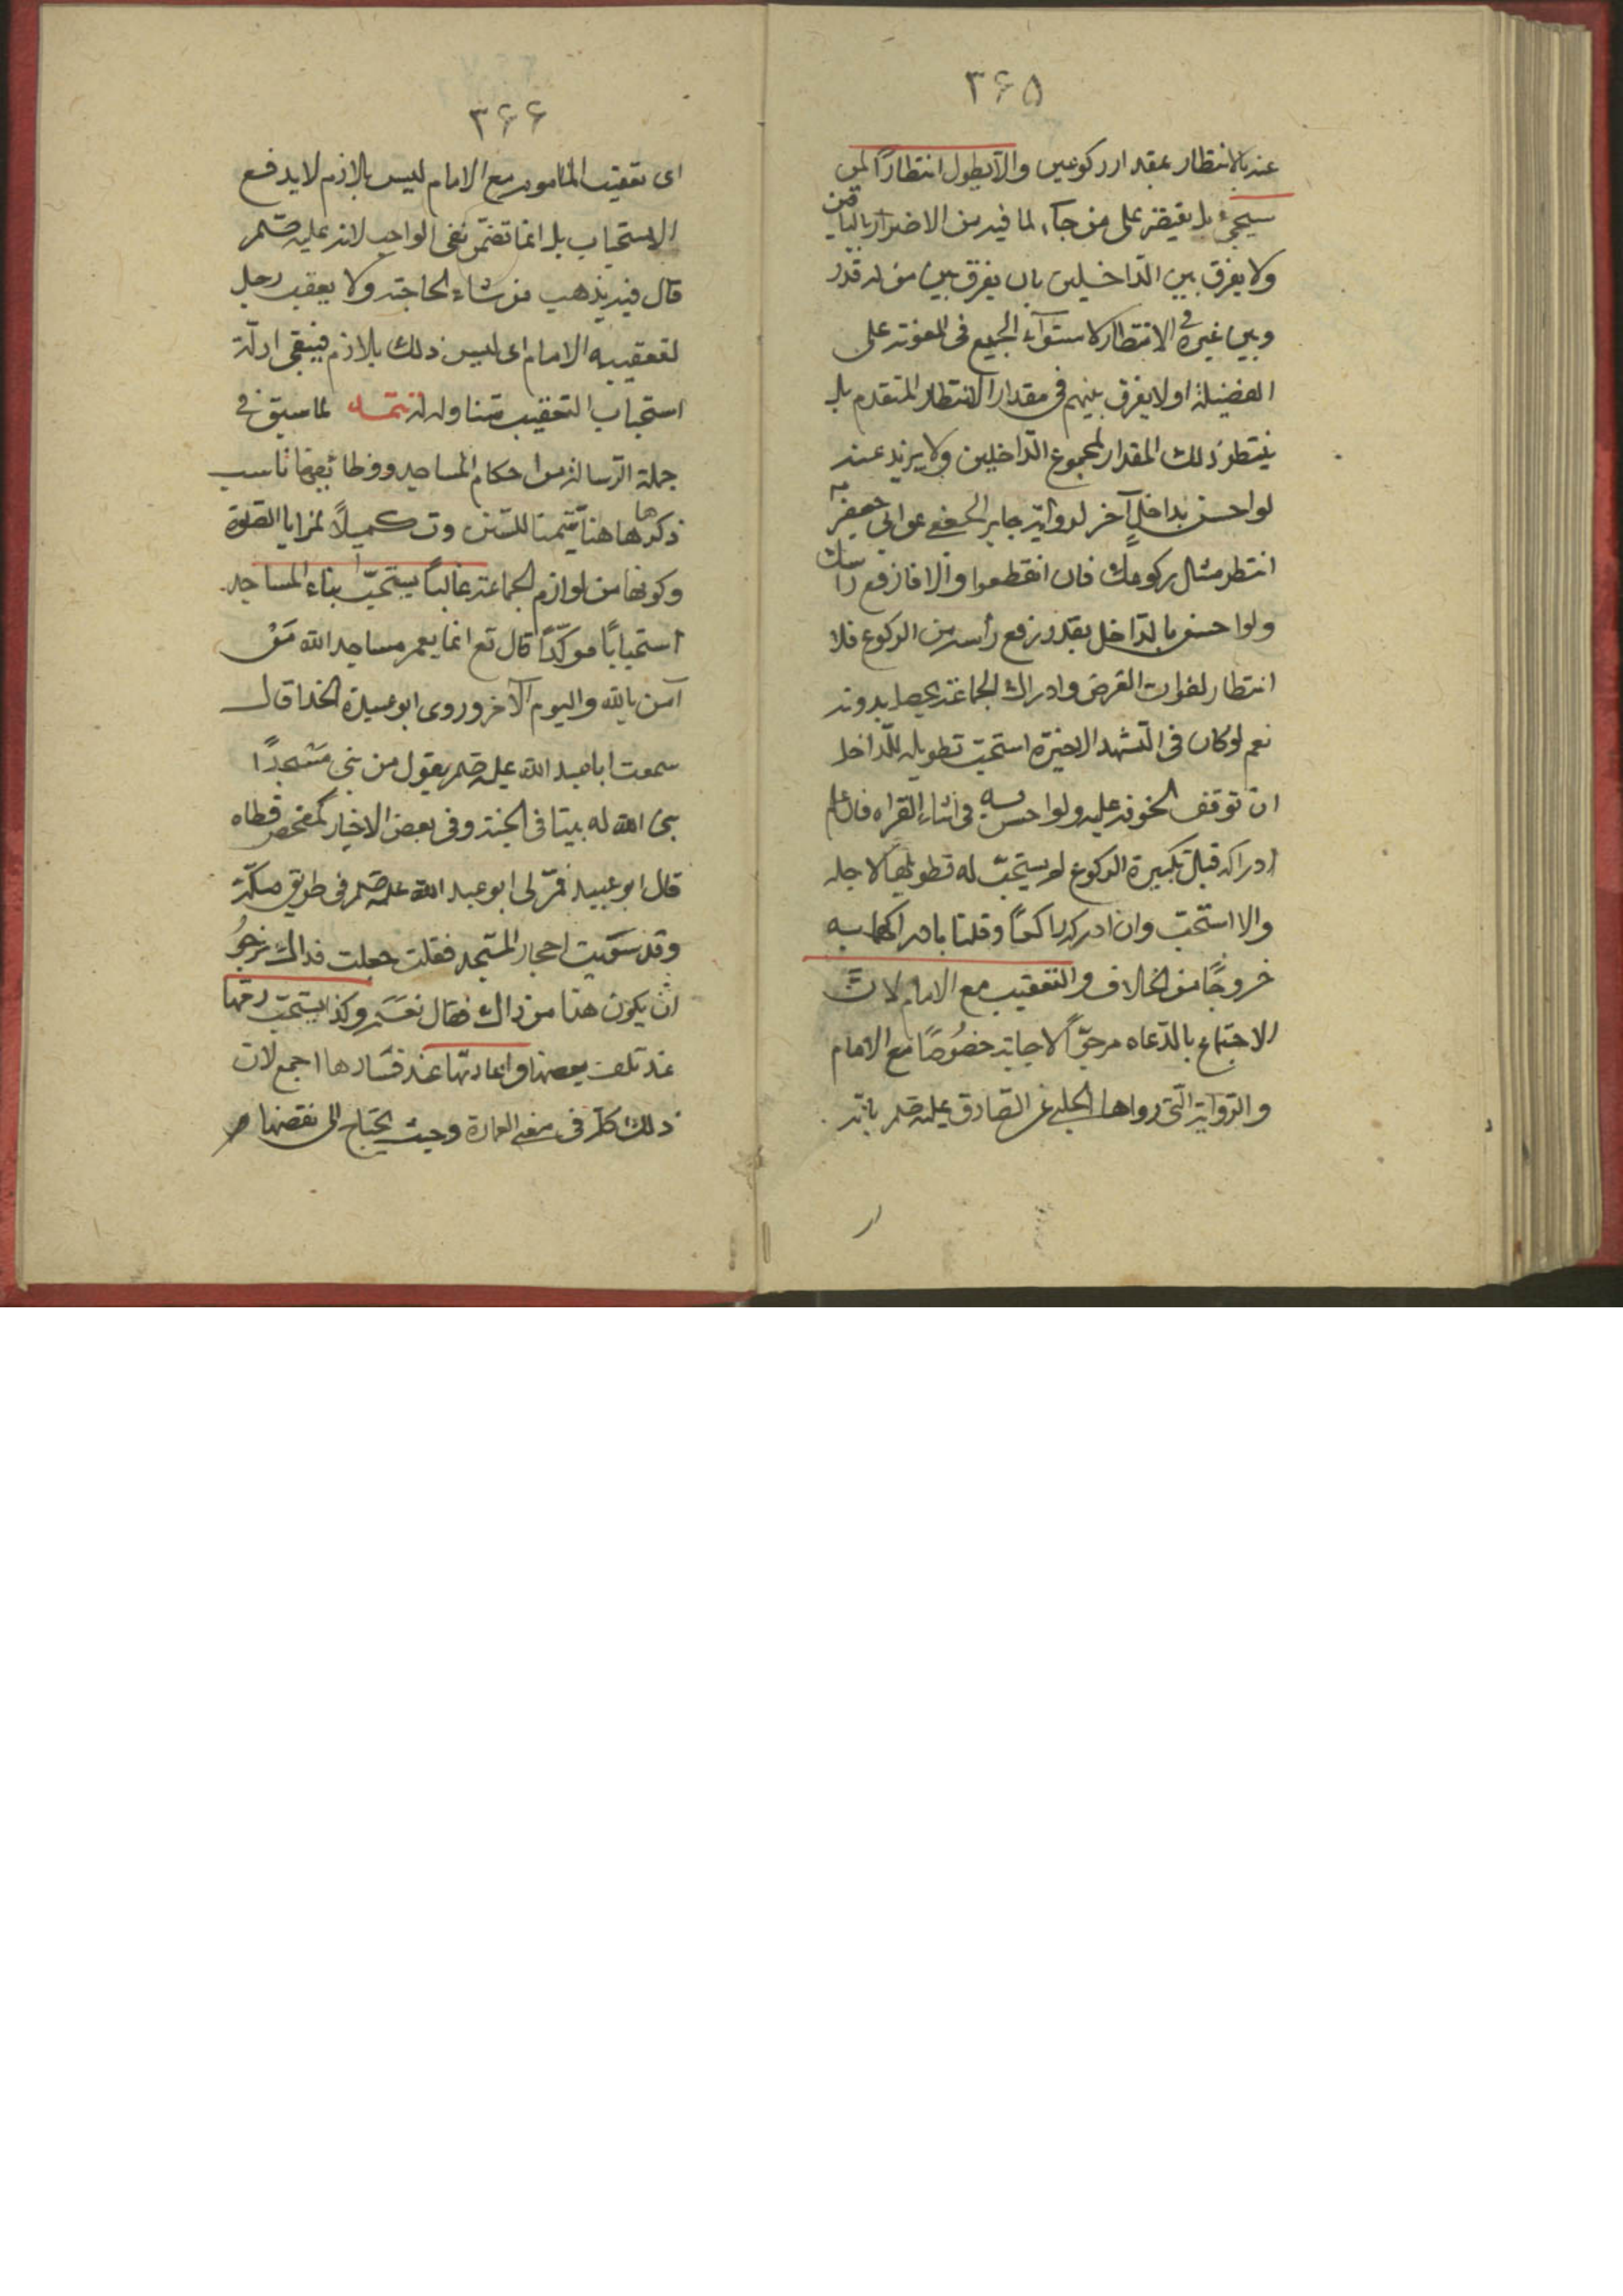 ۳۶۵
عند بالانتظار بمقدار ركوعين ولا يطول انتظارًا لمن
سيجيء بل يقتصر على من جاء لما فيه من الاضرار بالباقين
ولا يفرق بين الداخلين بان يفرق بين من له قدر
وبين غيره في الانتظار لاستواء الجميع في المعونة على
الفضيلة او لا يفرق بينهم في مقدار الانتظار المتقدم بل
ينتظر ذلك المقدار لمجموع الداخلين ولا يزيد عنه
لو احس بداخل آخر لرواية جابر الجعفي عن ابي جعفر
انتظر مثلي ركوعك فان انقطعوا والا فارفع راسك
ولو احس بالداخل بعد رفع رأسه من الركوع فلا
انتظار لفوات الغرض وادراك الجماعة يحصل بدونه
نعم لو كان في التشهد الاخيرة استحب تطويله للداخل
ان توقف لحوقه عليه ولو احس به في اثناء القراءه فان علم
ادراكه قبل تكبيرة الركوع لم يستحب له تطويلها لاجله
والا استحب وان ادركه راكعًا وقلنا بادراكها به
خروجًا من الخلاف والتعقيب مع الامام لان
الاجتماع بالدعاء مرجوًا لاجابته خصُوصًا مع الامام
والرواية التي رواها الحلبي عن الصادق عليه بانه
۳۶۶
اى تعقيب المامومين مع الامام ليس بلازم لا يدفع
الاستحباب بل انما تضمن نفى الواجب لانه عليه
قال فيه يذهب من شاء لحاجته ولا يعقب رجل
لتعقيب الامام اى ليس ذلك بلازم فيبقى ادلة
استحباب التعقيب متناوله له تتمه لما سبق في
جملة الرسالة من احكام المساجد ووظائفها ناسب
ذكرها هاهنا تتميمًا للسنن وتكميلاً لمزايا الصلوة
وكونها من لوازم الجماعة غالبًا يستحبّ بناء المساجد
استحبابًا موكّدًا قال تع انما يعمر مساجد الله مَنْ
آمن بالله واليوم الآخر وروى ابو عبيدة الحذا قال
سمعت ابا عبد الله عليه يقول من بنى مَسْجدًا
بنى الله له بيتا في الجنة وفى بعض الاخبار كمفحص قطاه
قال ابو عبيده فمرّ بى ابو عبد الله عليه في طريق مكّة
وقد سوّيت احجار المسجد فقلت جعلت فداك نرجوُ
ان يكون هذا من ذاك فقال نعَم وكذا يستحب رمّها
عند تلف بعضها واعادتها عند فسَادها اجمع لان
ذلك كله في معنى العمارة وحيث يحتاج الى نقضها